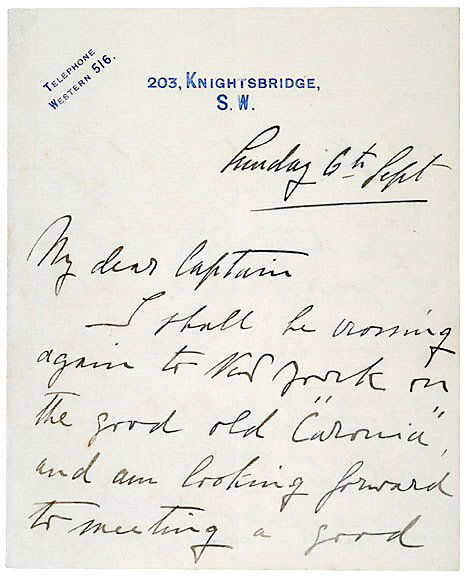 TELEPHONE
WESTERN 516.
203, KNIGHTSBRIDGE,
S.W.
Sunday 6th Sept
My dear Captain
I shall be crossing
again to New York on
the good old "Caronia",
and am looking forward
to meeting a good